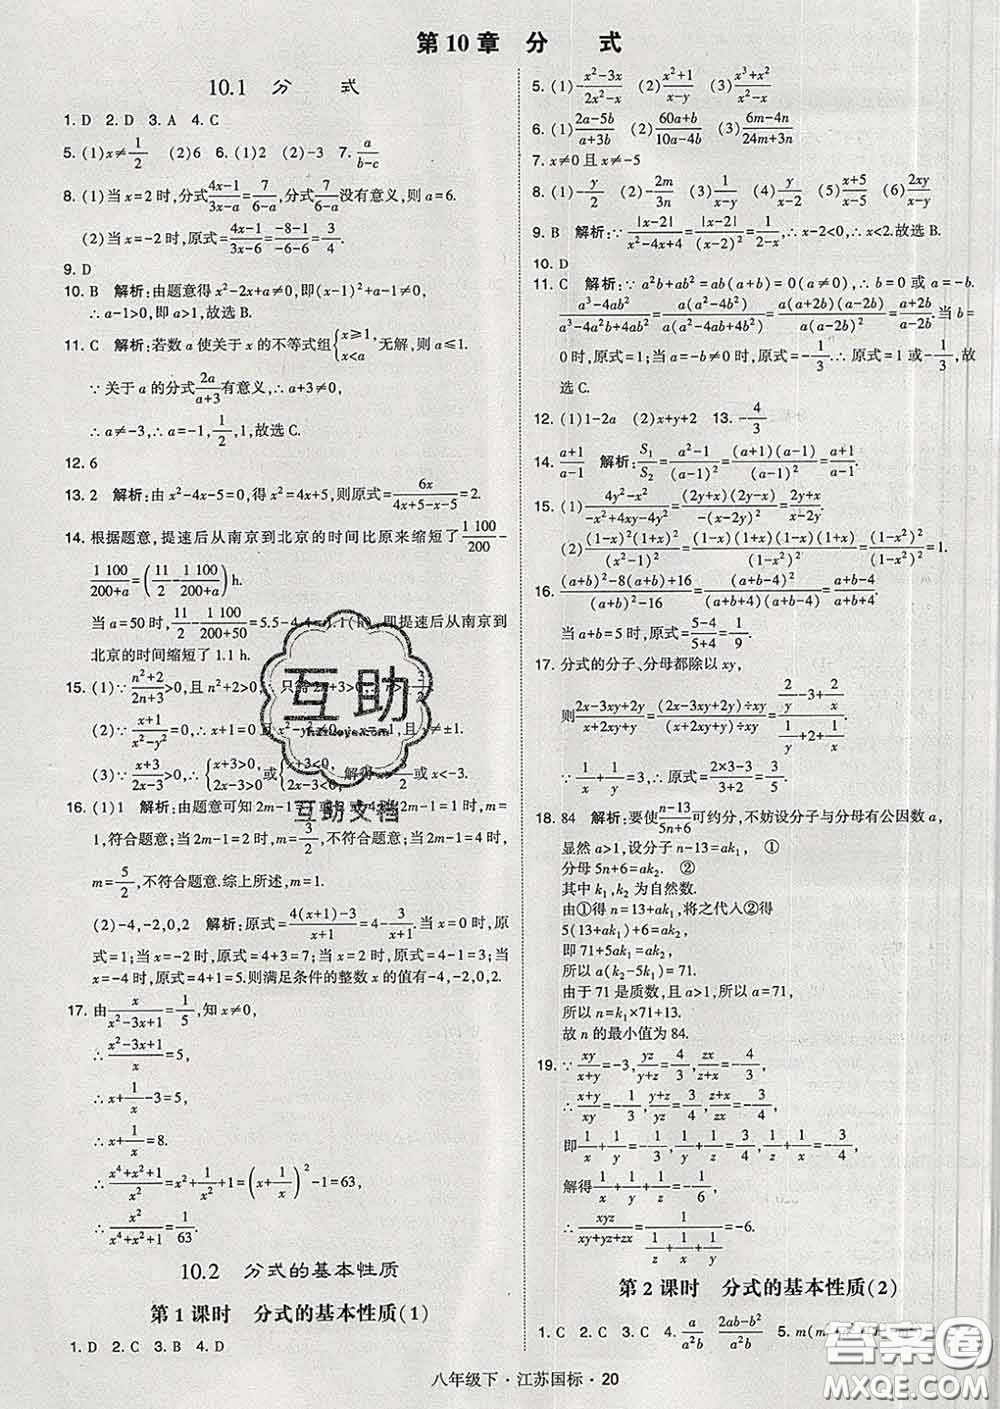 第10章 分 式
10.1 分 式
1. D 2. D 3. A 4. C
5. (1)x≠1/2 (2)6 6. (1)2 (2)-3 7. a/(b-c)
8. (1)当x=2时,分式(4x-1)/(3x-a)=7/(6-a),分式7/(6-a)没有意义,所以a=6.
(2)当x=-2时,原式=(4x-1)/(3x-6)=(-8-1)/(-6-6)=3/4.
9. D
10. B 解析:由题意得x²-2x+a≠0,即(x-1)²+a-1≠0,
∴a-1>0,即a>1,故选B.
11. C 解析:若数a使关于x的不等式组{x≥1, x<a,无解,则a≤1.
∵关于a的分式2a/(a+3)有意义,∴a+3≠0,
∴a≠-3,∴a=-1,1/2,1,故选C.
12. 6
13. 2 解析:由x²-4x-5=0,得x²=4x+5,则原式=6x/(4x+5-x-5)=2.
14. 根据题意,提速后从南京到北京的时间比原来缩短了1 100/200-
1 100/(200+a)=(11/2-1 100/(200+a)) h.
当a=50时,11/2-1 100/(200+50)=5.5-4.4=1.1(h),即提速后从南京到
北京的时间缩短了1.1 h.
15. (1)∵(n²+2)/(2n+3)>0,且n²+2>0,∴只需2n+3>0
(2)∵(x+1)/(x²-y²)=0,∴x+1=0且x²-y²≠0,∴x=-1,且y≠±1.
(3)∵(x+3)/(2x-3)>0,∴{x+3>0, 2x-3>0或{x+3<0, 2x-3<0,解得x>3/2或x<-3.
16. (1)1 解析:由题意可知2m-1=1或2或4.当2m-1=1时,m=
1,符合题意;当2m-1=2时,m=3/2,不符合题意;当2m-1=4时,
m=5/2,不符合题意.综上所述,m=1.
(2)-4,-2,0,2 解析:原式=(4(x+1)-3)/(x+1)=4-3/(x+1).当x=0时,原
式=1;当x=-2时,原式=4+3=7;当x=2时,原式=4-1=3;当
x=-4时,原式=4+1=5.则满足条件的整数x的值有-4,-2,0,2.
17. 由x/(x²-3x+1)=1/5,知x≠0,
∴(x²-3x+1)/x=5,
∴x+1/x-3=5,
∴x+1/x=8.
∴(x⁴+x²+1)/x²=x²+1/x²+1=(x+1/x)²-1=63,
∴x²/(x⁴+x²+1)=1/63.
10.2 分式的基本性质
第1课时 分式的基本性质(1)
1. D 2. C 3. B 4. D
5. (1)(x²-3x)/(2x²-x) (2)(x²+1)/(x-x²) (3)(x³+x²)/(x²-x)
6. (1)(2a-5b)/(a+3b) (2)(60a+b)/(10a-4b) (3)(6m-4n)/(24m+3n)
7. x≠0且x≠-5
8. (1)-y/2 (2)-2m/3n (3)1/(x-y) (4)y/(x-2) (5)(x+5)/(x-5) (6)2xy/(x-y)
9. B 解析:∵|x-2|/(x²-4x+4)=|x-2|/(x-2)²=1/(2-x),∴x-2<0,∴x<2.故选B.
10. D
11. C 解析:∵a²b+ab²=ab(a+b)=0(a≠0),∴b=0或a=-b.
(a³-4ab²)/(a³-4a²b+4ab²)=a(a²-4b²)/a(a²-4ab+4b²)=a(a+2b)(a-2b)/a(a-2b)²=(a+2b)/(a-2b).当b=
0时,原式=1;当a=-b≠0时,原式=-1/3.∴原式=1或-1/3,故
选C.
12. (1)1-2a (2)x+y+2 13. -4/3
14. (a+1)/(a-1) 解析:S₁/S₂=(a²-1)/(a-1)²=(a+1)(a-1)/(a-1)²=(a+1)/(a-1).
15. (1)(4y²-x²)/(-x²+4xy-4y²)=(2y+x)(2y-x)/-(x-2y)²=(2y+x)/(x-2y).
(2)(1-x)²(1+x)²/(x²-1)²=(1-x)(1+x)(1-x)(1+x)/(1-x²)²=(1-x²)²/(1-x²)²=1.
16. ((a+b)²-8(a+b)+16)/((a+b)²-16)=(a+b-4)²/(a+b+4)(a+b-4)=(a+b-4)/(a+b+4).
当a+b=5时,原式=(5-4)/(5+4)=1/9.
17. 分式的分子、分母都除以xy,
则(2x-3xy+2y)/(x+2xy+y)=(2x-3xy+2y)÷xy/(x+2xy+y)÷xy=(2/y-3+2/x)/(1/y+2+1/x).
∵1/x+1/y=3,∴原式=(2×3-3)/(3+2)=3/5.
18. 84 解析:要使(n-13)/(5n+6)可约分,不妨设分子与分母有公因数a,
显然a>1,设分子n-13=ak₁, ①
分母5n+6=ak₂. ②
其中k₁,k₂为自然数.
由①得n=13+ak₁,将之代入②得
5(13+ak₁)+6=ak₂,
即71+5ak₁=ak₂,
所以a(k₂-5k₁)=71.
由于71是质数,且a>1,所以a=71,
所以n=k₁×71+13.
故n的最小值为84.
19. ∵xy/(x+y)=-3,yz/(y+z)=4/3,zx/(z+x)=-4/3,
∴(x+y)/xy=-1/3,(y+z)/yz=3/4,(z+x)/zx=-3/4,
即1/x+1/y=-1/3,1/y+1/z=3/4,1/z+1/x=-3/4,
解得1/x+1/y+1/z=-1/6,
∴xyz/(xy+yz+zx)=1/(1/x+1/y+1/z)=-6.
第2课时 分式的基本性质(2)
1. C 2. C 3. C 4. a/a²b² (2ab-b²)/a²b² 5. m(m
八年级下·江苏国标·20
互助
互助文档
答案圈
MXQE.COM